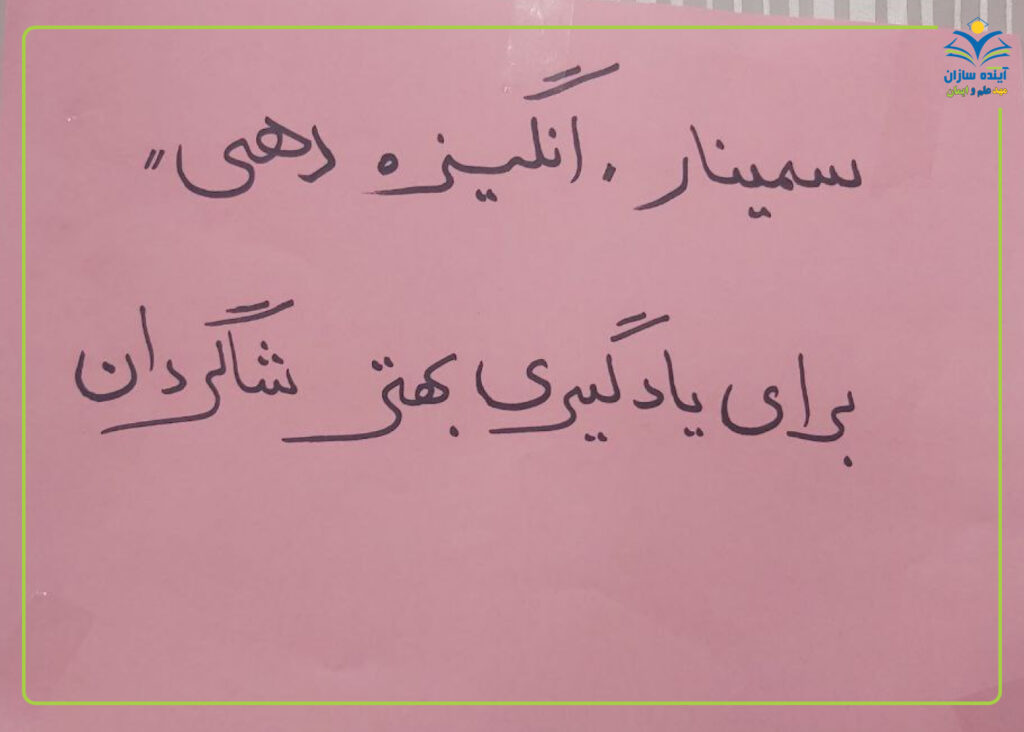 سمینار . انگیزه دهی "
برای یادگیری بهتر شاگردان
آینده سازان
مهد علم و ایمان